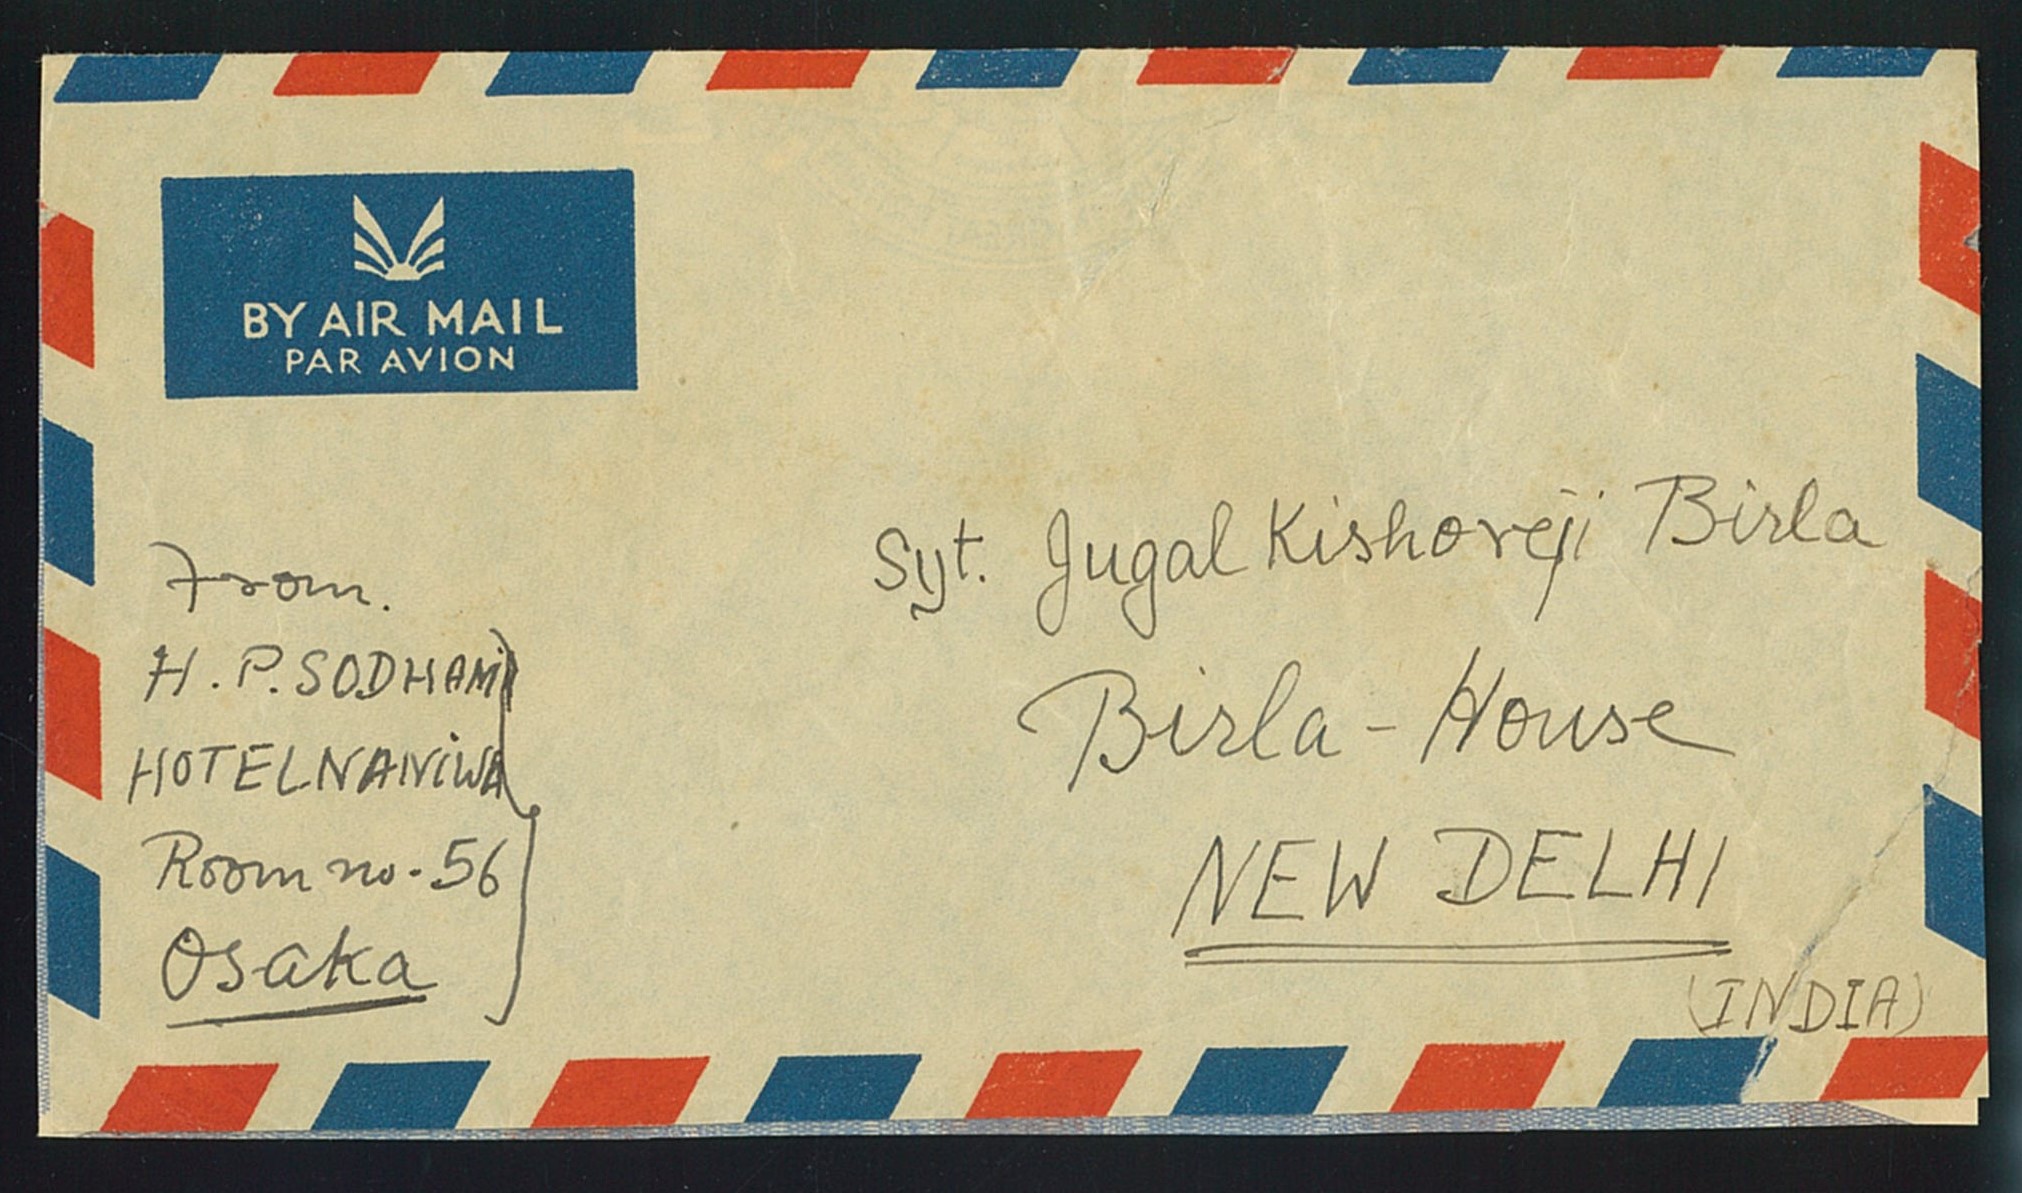 BY AIR MAIL
PAR AVION
From.
H. P. SODHANI
HOTEL NANIWA
Room no. 56
Osaka
Syt. Jugal Kishoreji Birla
Birla - House
NEW DELHI
(INDIA)